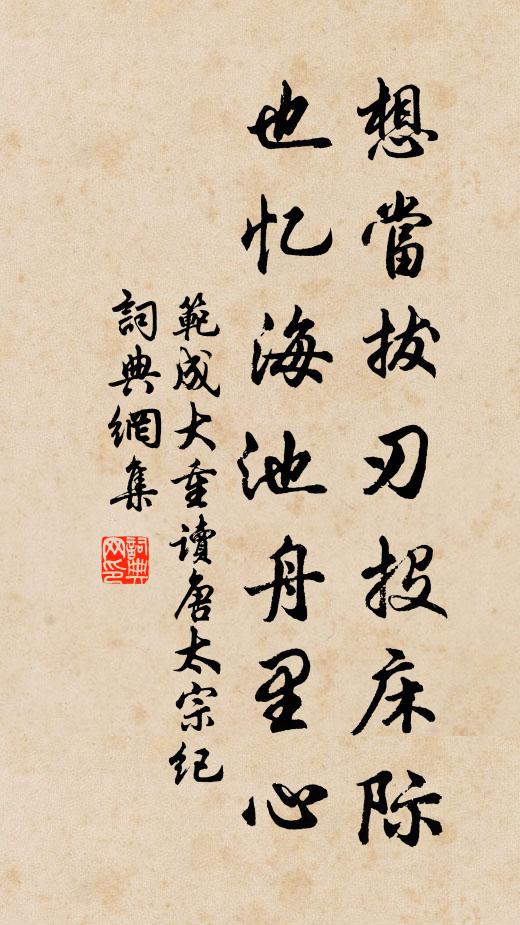 想當拔刃投床际
也忆海池舟里心
範成大重讀唐太宗纪
詞典網集
詞典网印